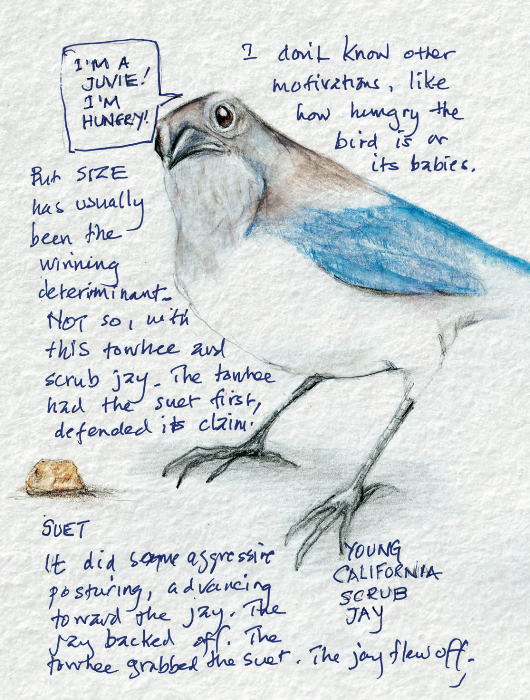 I'M A
JUVIE!
I'M
HUNGRY!
I don't know other
motivations, like
how hungry the
bird is or
its babies.
But SIZE
has usually
been the
winning
determinant.
NOT so, with
this towhee and
scrub jay. The towhee
had the suet first,
defended its claim.
SUET
It did some aggressive
posturing, advancing
toward the jay. The
jay backed off. The
towhee grabbed the suet. The jay flew off.
YOUNG
CALIFORNIA
SCRUB
JAY